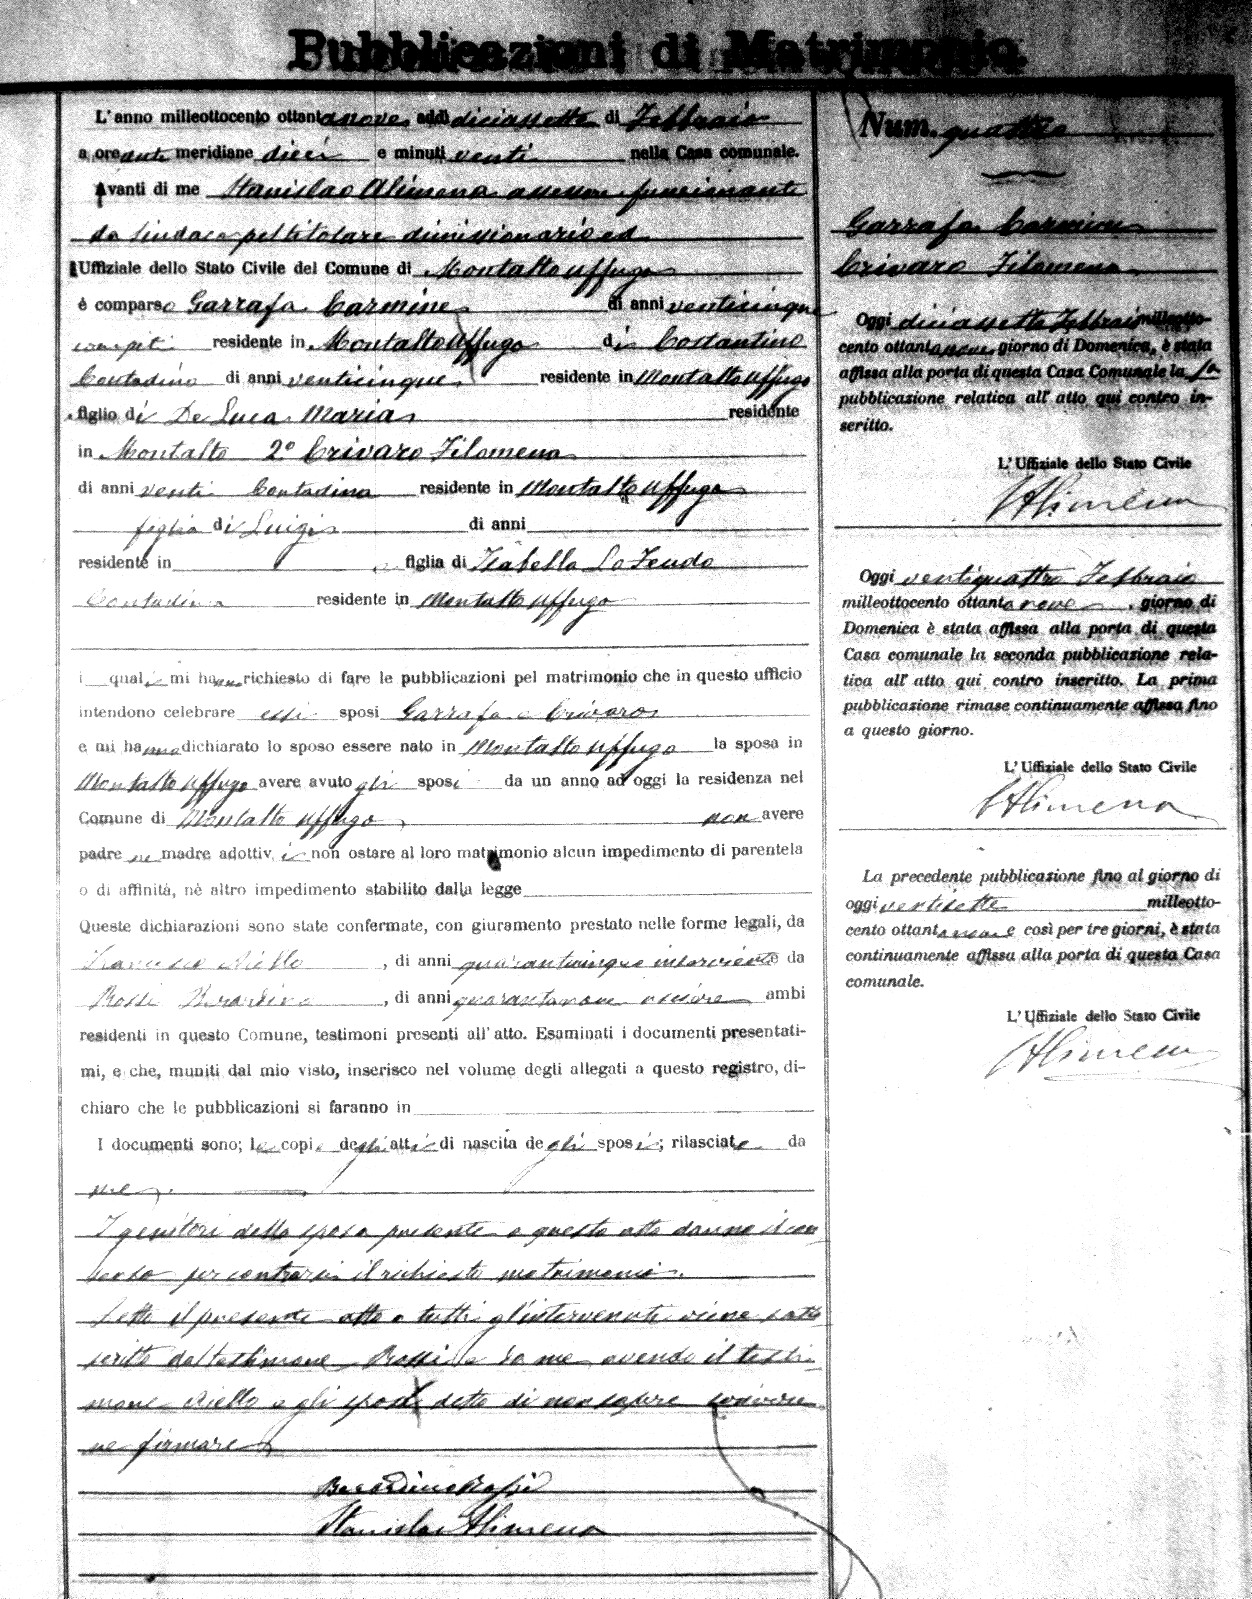 Pubblicazioni di Matrimonio
L'anno milleottocento ottantanove, addi diciassette di Febbraio
a ore ante meridiane dieci e minuti venti nella Casa comunale.
Avanti di me Stanislao Alimena assessore funzionante
da Sindaco pel titolare dimissionario ed
Uffiziale dello Stato Civile del Comune di Montalto Uffugo
è comparso Garrafa Carmine di anni venticinque
compiti residente in Montalto Uffugo di Costantino
Contadino di anni venticinque residente in Montalto Uffugo
figlio di De Luca Maria residente
in Montalto 2° Crivaro Filomena
di anni venti Contadina residente in Montalto Uffugo
figlia di Luigi di anni
residente in figlia di Isabella Lo Feudo
Contadina residente in Montalto Uffugo
i quali mi hanno richiesto di fare le pubblicazioni pel matrimonio che in questo ufficio
intendono celebrare essi sposi Garrafa e Crivaro
e mi hanno dichiarato lo sposo essere nato in Montalto Uffugo la sposa in
Montalto Uffugo avere avuto gli sposi da un anno ad oggi la residenza nel
Comune di Montalto Uffugo, non avere
padre ne madre adottivi non ostare al loro matrimonio alcun impedimento di parentela
o di affinità, nè altro impedimento stabilito dalla legge
Queste dichiarazioni sono state confermate, con giuramento prestato nelle forme legali, da
Francesco Aiello, di anni quarantacinque inserviente da
Rossi Berardino, di anni quarantanove usciere ambi
residenti in questo Comune, testimoni presenti all'atto. Esaminati i documenti presentati-
mi, e che, muniti dal mio visto, inserisco nel volume degli allegati a questo registro, di-
chiaro che le pubblicazioni si faranno in
I documenti sono; le copie degli atti di nascita degli sposi; rilasciate da
me.
I genitori dello sposo presente a questo atto danno il con
senso per contrarsi il richiesto matrimonio.
Letto il presente atto a tutti gl'intervenuti viene sotto
scritto dal testimone Rossi e da me avendo il testi
mone Aiello e gli sposi detto di non sapere scrivere
ne firmare
Berardino Rossi
Stanislao Alimena
Num. quattro
Garrafa Carmine
Crivaro Filomena
Oggi diciassette Febbraio milleotto-
cento ottantanove giorno di Domenica, è stata
affissa alla porta di questa Casa Comunale la 1a
pubblicazione relativa all'atto qui contro in-
scritto.
L'Uffiziale dello Stato Civile
Alimena
Oggi ventiquattro Febbraio
milleottocento ottantanove, giorno di
Domenica è stata affissa alla porta di questa
Casa comunale la seconda pubblicazione rela-
tiva all'atto qui contro inscritto. La prima
pubblicazione rimase continuamente affissa fino
a questo giorno.
L'Uffiziale dello Stato Civile
Alimena
La precedente pubblicazione fino al giorno di
oggi ventisette milleotto-
cento ottantanove e così per tre giorni, è stata
continuamente affissa alla porta di questa Casa
comunale.
L'Uffiziale dello Stato Civile
Alimena